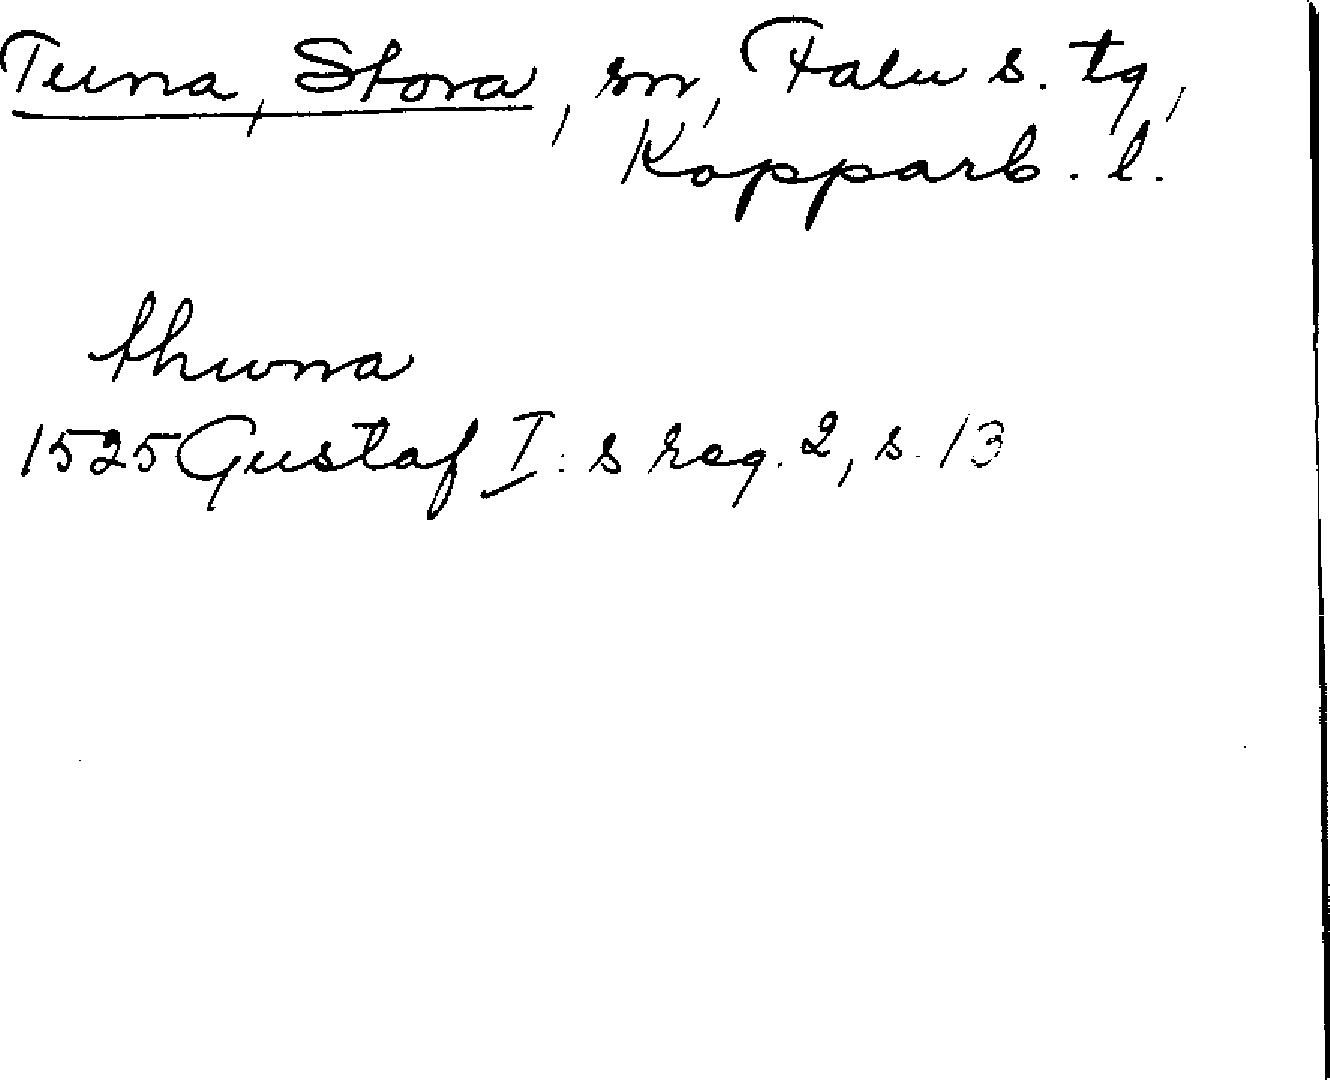 Tuna, Stora, sn, Falu s. tg,
Kopparb. l.
thuna
1525 Gustaf I:s reg. 2, s. 13